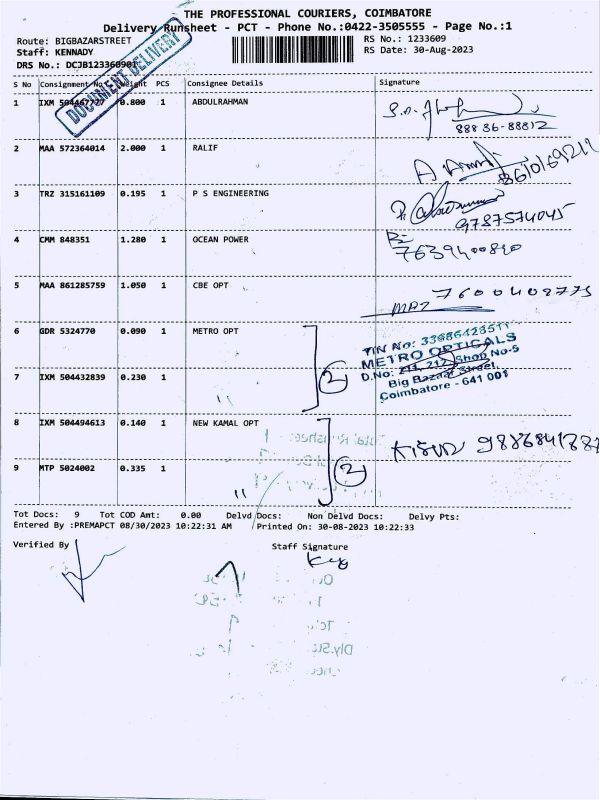 THE PROFESSIONAL COURIERS, COIMBATORE
Delivery Runsheet - PCT - Phone No.:0422-3505555 - Page No.:1
Route: BIGBAZARSTREET
RS No.: 1233609
Staff: KENNADY
RS Date: 30-Aug-2023
DRS No.: DCJB123360901
DOCUMENT DELIVERY
S No Consignment No. Weight PCS Consignee Details Signature
1 IXM 504467777 0.800 1 ABDULRAHMAN
88836-88812
2 MAA 572364014 2.000 1 RALIF
8610169211
3 TRZ 315161109 0.195 1 P S ENGINEERING
9787574045
4 CMM 848351 1.280 1 OCEAN POWER
5 MAA 861285759 1.050 1 CBE OPT
7600402775
6 GDR 5324770 0.090 1 METRO OPT
2
TIN No: 33686428511
METRO OPTICALS
D.No: 211, 212, Shop No-5
Big Bazaar Street,
Coimbatore - 641 001
7 IXM 504432839 0.230 1 "
8 IXM 504494613 0.140 1 NEW KAMAL OPT
2
9 MTP 5024002 0.335 1 "
Tot Docs: 9 Tot COD Amt: 0.00 Delvd Docs: Non Delvd Docs: Delvy Pts:
Entered By :PREMAPCT 08/30/2023 10:22:31 AM Printed On: 30-08-2023 10:22:33
Verified By
Staff Signature